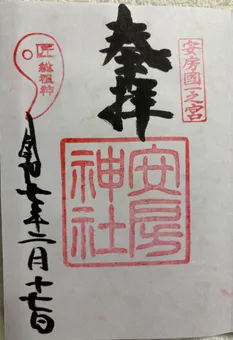 安房國一之宮
奉拝
安房神社
総祖神
令和七年十二月十七日